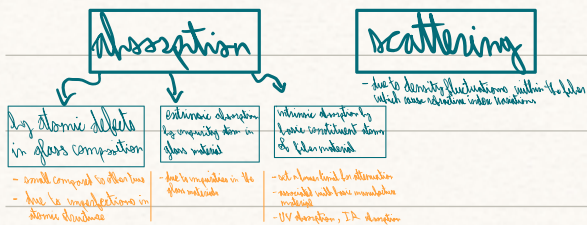 absorption
scattering
- due to density fluctuations within the fiber
which cause refractive index variations
by atomic defects
in glass composition
extrinsic absorption
by impurity atom in
glass material
intrinsic absorption by
basic constituent atoms
of fiber material
- small compared to other two
- due to imperfections in
atomic structure
- due to impurities in the
glass materials
- set a lower limit for attenuation
- associated with basic
material
- UV absorption, IR absorption